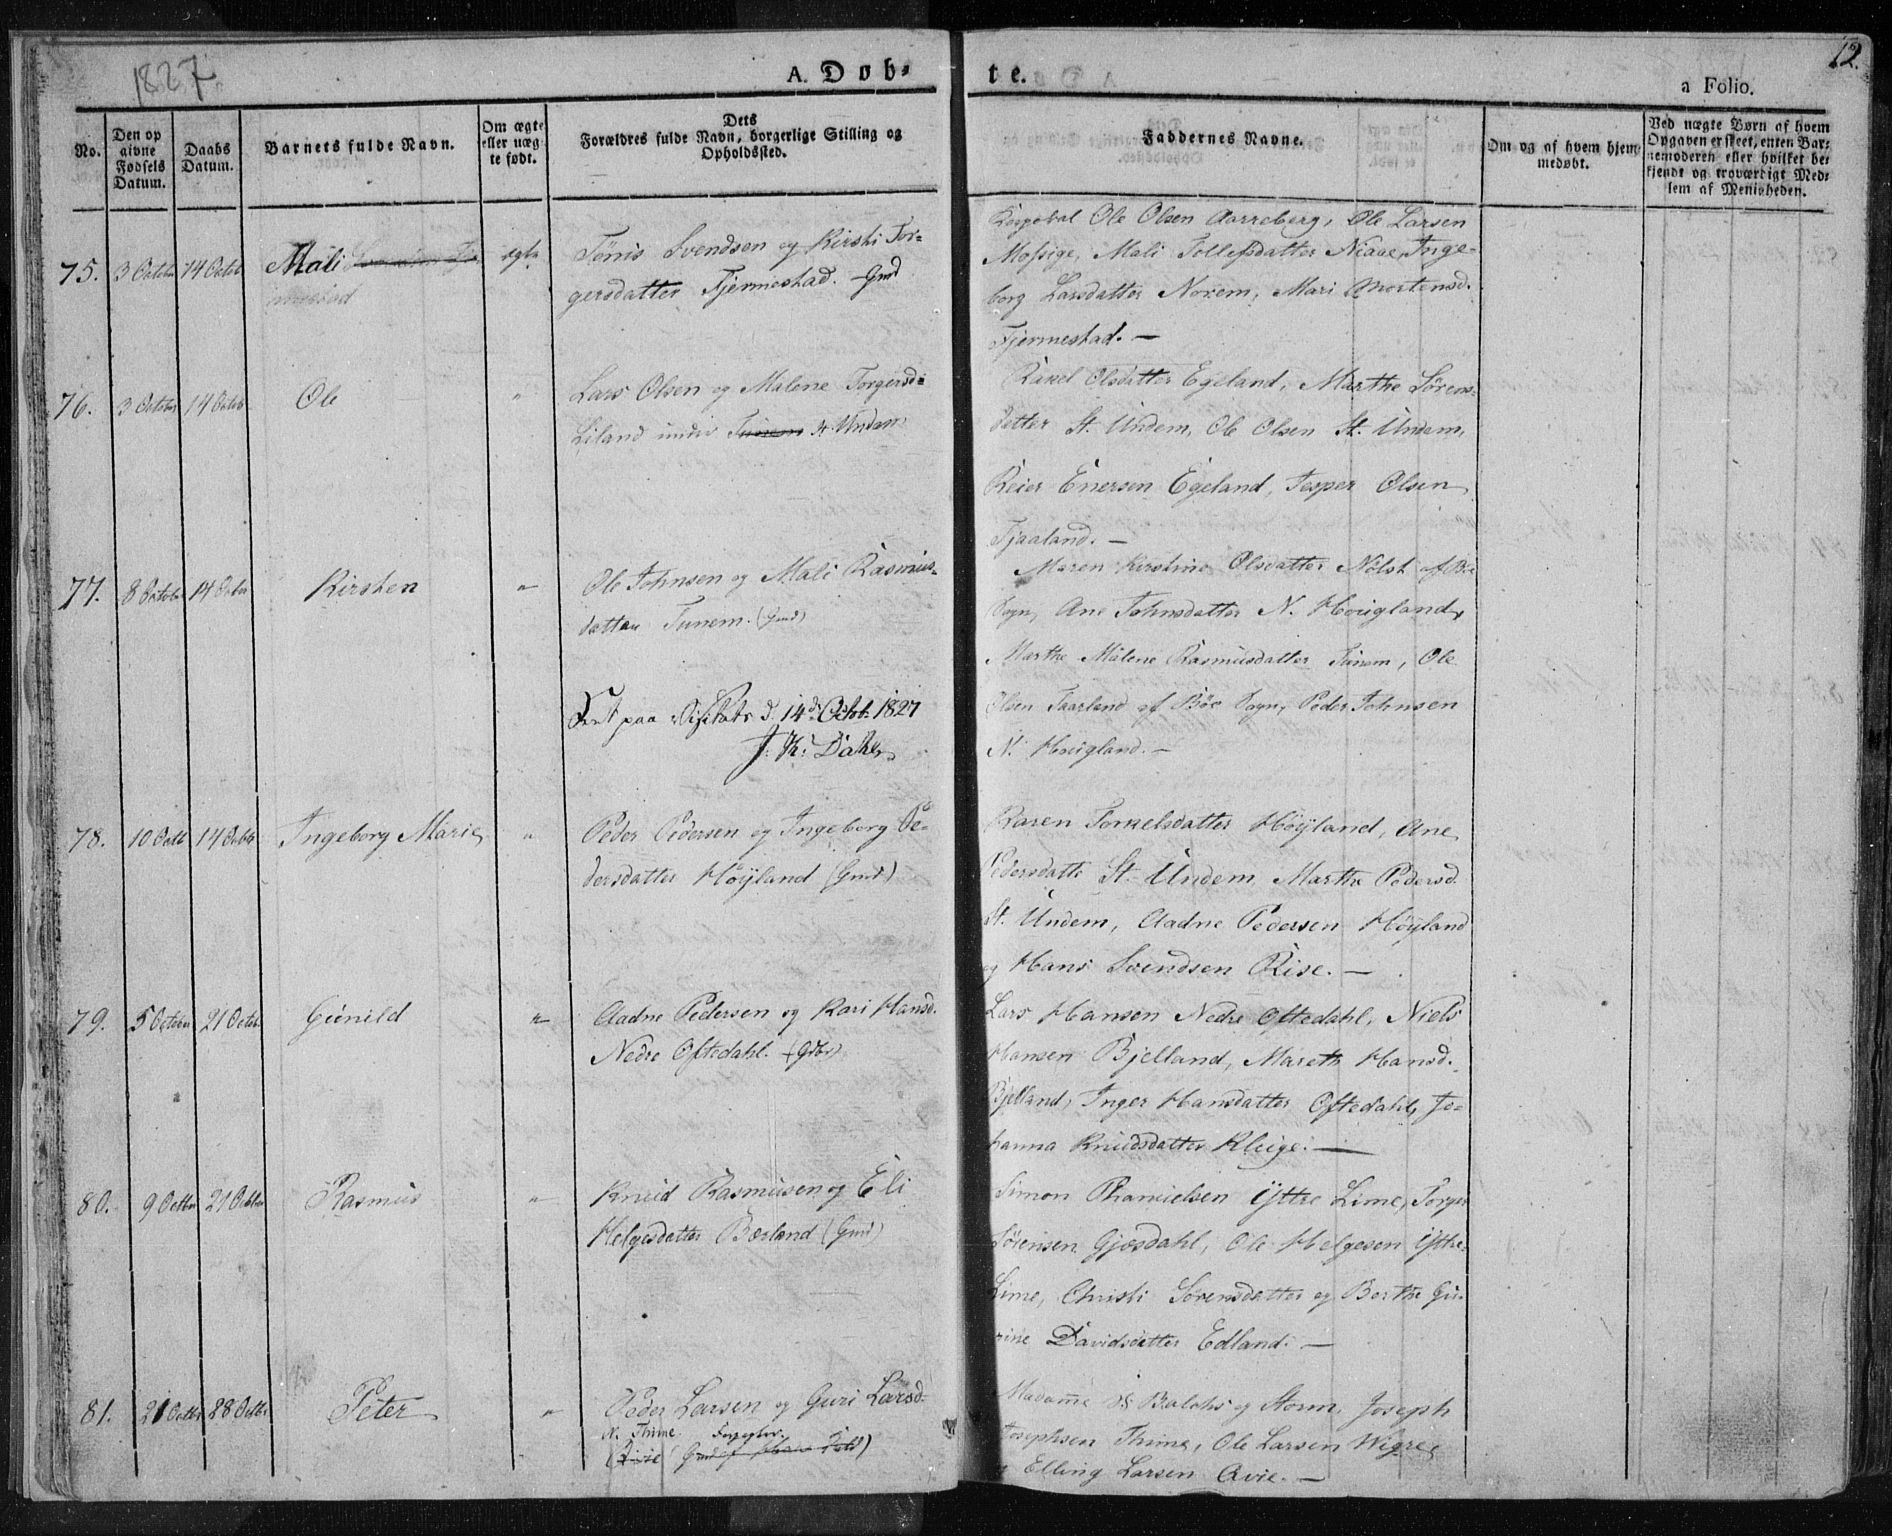 1827
A. Døb-
te.
12.
a Folio.
No.
Den op
givne
Fødsels
Datum.
Daabs
Datum.
Barnets fulde Navn.
Om ægte
eller uæg
te født.
Dets
Forældres fulde Navn, borgerlige Stilling og
Opholdssted.
Faddernes Navne.
Om og af hvem hjem
medøbt.
Ved uægte Børn af hvem
Opgaven er skeet, enten Bar-
nemoderen eller hvilket be-
kjendt og troværdigt Med-
lem af Menigheden.
75. 3 October 14 Octob Mali
ægte
Tönis Svendsen og Kirsti Tor-
gersdatter Fjermestad. Gmd
Ole Olsen Aarreberg, Ole Larsen
Mossige, Mali Tollefsdatter Niaae, Inge-
borg Larsdatter Norem, Mari Mortensd.
Fjermestad. —
76. 3 October 14 Octob Ole "
Lars Olsen og Malene Torgersd:
Liland under Tunem St. Undem
Rakel Olsdatter Egeland, Marthe Sörens-
datter St. Undem, Ole Olsen St. Undem,
Reier Enersen Egeland, Jesper Olsen
Fjaaland. —
77. 8 Octob 14 Octob Kirsten "
Ole Johnsen og Mali Rasmus-
datter Tunem. (Gmd)
Maren Kirstine Olsdatter Nölst af Bö
Sogn, Ane Johnsdatter N. Hougland,
Marthe Malene Rasmusdatter Tunem, Ole
Olsen Taarland af Böe Sogn, Peder Johnsen
N. Hougland. —
Seet paa Visitats d. 14d Octob. 1827
78. 10 Octb 14 Octob Ingeborg Marie "
Peder Pedersen og Ingeborg Pe-
dersdatter Höyland (Gmd)
Karen Torkelsdatter Höyland, Ane
Pedersdatte St. Undem, Marthe Pedersd.
St. Undem, Aadne Pedersen Höyland
og Hans Svendsen Rise. —
79. 5 Octobr 21 Octob. Gunild "
Aadne Pedersen og Kari Hansd.
Nedre Oftedahl. (Gdbr)
Lars Hansen Nedre Oftedahl, Niels
Hansen Bjelland, Mareth Hansd.
Bjelland, Inger Hansdatter Oftedahl, Jo-
hanna Knudsdatter Kluge. —
80. 9 Octbr 21 Octobr Rasmus "
Knud Rasmusen og Eli
Helgesdatter Bærland (Gmd)
Simon Thamielsen Yttre Lime, Torger
Sörensen Gjæsdahl, Ole Helgesen Yttre
Lime, Christi Sörensdatter og Berthe Gu-
rine Davidsdatter Edland. —
81. 21 Octbr 28 Octbr Peter "
Peder Larsen og Guri Larsd.
N. Thime
Madame Balchs og Storm, Joseph
Josephsen Thime, Ole Larsen Wigre,
og Elling Larsen Avie. —